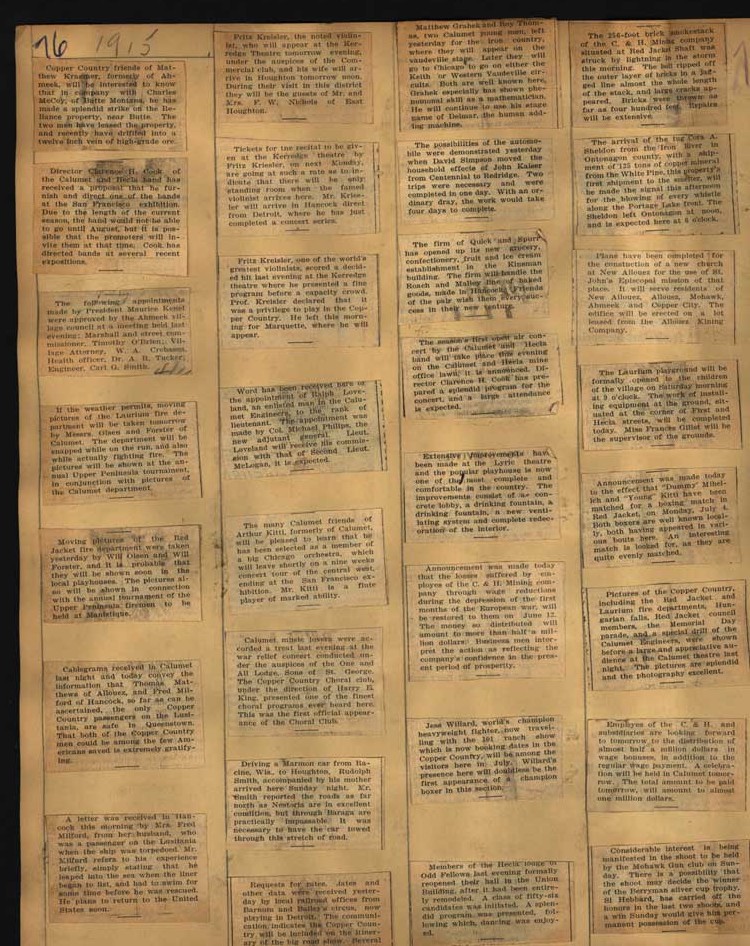 76 1915
Copper Country friends of Mat-
thew Kraemer, formerly of Ah-
meek, will be interested to know
that in company with Charles
McCoy, of Butte Montana, he has
made a splendid strike on the Re-
liance property, near Butte. The
two men have leased the property,
and recently have drifted into a
twelve inch vein of high-grade ore.
Director Clarence H. Cook of
the Calumet and Hecla band has
received a proposal that he fur-
nish and direct one of the bands
at the San Francisco exhibition.
Due to the length of the current
season, the band would not be able
to go until August, but it is pos-
sible that the promoters will in-
vite them at that time. Cook has
directed bands at several recent
expositions.
The following appointments
made by President Maurice Kesel
were approved by the Ahmeek vil-
lage council at a meeting held last
evening: Marshall and street com-
missioner, Timothy O'Brien; Vil-
lage Attorney, W. A.
Health officer, Dr. A. B. Tucker;
Engineer, Carl G. Smith.
If the weather permits, moving
pictures of the Laurium fire de-
partment will be taken tomorrow
by Messrs. Olsen and Forster of
Calumet. The department will be
snapped while on the run, and also
while actually fighting fire. The
pictures will be shown at the an-
nual Upper Peninsula tournament,
in conjunction with pictures of
the Calumet department.
Moving pictures of the Red
Jacket fire department were taken
yesterday by Will Olsen and Will
Forster, and it is probable that
they will be shown soon in the
local playhouses. The pictures al-
so will be shown in connection
with the annual tournament of the
Upper Peninsula firemen to be
held at Manistique.
Cablegrams received in Calumet
last night and today convey the
information that Thomas Mat-
thews of Allouez, and Fred Mil-
ford of Hancock, so far as can be
ascertained, the only Copper
Country passengers on the Lusi-
tania, are safe in Queenstown.
That both of the Copper Country
men could be among the few Am-
ericans saved is extremely gratify-
ing.
A letter was received in Han-
cock this morning by Mrs. Fred
Milford, from her husband, who
was a passenger on the Lusitania
when the ship was torpedoed. Mr.
Milford refers to his experience
briefly, simply stating that he
leaped into the sea when the liner
began to list, and had to swim for
some time before he was rescued.
He plans to return to the United
States soon.
Fritz Kreisler, the noted violin-
ist, who will appear at the Ker-
redge Theatre tomorrow evening,
under the auspices of the Com-
mercial club, and his wife will ar-
rive in Houghton tomorrow noon.
During their visit in this district
they will be the guests of Mr. and
Mrs. F. W. Nichols of East
Houghton.
Tickets for the recital to be giv-
en at the Kerredge theatre by
Fritz Kreisler, on next Monday,
are going at such a rate as to in-
dicate that there will be only
standing room when the famed
violinist arrives here. Mr. Kries-
ler will arrive in Hancock direct
from Detroit, where he has just
completed a concert series.
Fritz Kreisler, one of the world's
greatest violinists, scored a decid-
ed hit last evening at the Kerredge
theatre where he presented a fine
program before a capacity crowd.
Prof. Kreisler declared that it
was a privilege to play in the Cop-
per Country. He left this morn-
ing for Marquette, where he will
appear.
Word has been received here of
the appointment of Ralph Love-
land, an enlisted man in the Calu-
met Engineers, to the rank of
lieutenant. The appointment was
made by Col. Michael Philips, the
new adjutant general. Lieut.
Loveland will receive his commis-
sion with that of Second Lieut.
McLogan, it is expected.
The many Calumet friends of
Arthur Kitti, formerly of Calumet,
will be pleased to learn that he
has been selected as a member of
a big Chicago orchestra, which
will leave shortly on a nine weeks
concert tour of the central west,
ending at the San Francisco ex-
hibition. Mr. Kitti is a flute
player of marked ability.
Calumet music lovers were ac-
corded a treat last evening at the
war relief concert conducted un-
der the auspices of the One and
All Lodge, Sons of St. George.
The Copper Country Choral club,
under the direction of Harry E.
King, presented one of the finest
choral programs ever heard here.
This was the first official appear-
ance of the Choral Club.
Driving a Marmon car from Ra-
cine, Wis., to Houghton, Rudolph
Smith, accompanied by his mother
arrived here Sunday night. Mr.
Smith reported the roads as far
north as Nestoria are in excellent
condition, but through Baraga are
practically impassable. It was
necessary to have the car towed
through this stretch of road.
Requests for rates, dates and
other data were received yester-
day by local railroad offices from
Barnum and Bailey's circus, now
playing in Detroit. The communi-
cation indicates the Copper Coun-
try will be included on the itiner-
ary of the big road show. Several
Matthew Grahek and Roy Thom-
as, two Calumet young men, left
yesterday for the iron country,
where they will appear on the
vaudeville stage. Later they will
go to Chicago to go on either the
Keith or Western Vaudeville cir-
cuits. Both are well known here,
Grahek especially has shown phe-
nomonal skill as a mathematician.
He will continue to use his stage
name of Delmar, the human add-
ing machine.
The possibilities of the automo-
bile were demonstrated yesterday
when David Simpson moved the
household effects of John Kaiser
from Centennial to Redridge. Two
trips were necessary and were
completed in one day. With an or-
dinary dray, the work would take
four days to complete.
The firm of Quick and Spurr
has opened up its new grocery,
confectionery, fruit and ice cream
establishment in the Kinsman
building. The firm will handle the
Roach and Malley line of baked
goods, made in Hancock. Friends
of the pair wish them every suc-
cess in their new venture.
The season's first open air con-
cert by the Calumet and Hecla
band will take place this evening
on the Calumet and Hecla mine
office lawn, it is announced. Di-
rector Clarence H. Cook has pre-
pared a splendid program for the
concert, and a large attendance
is expected.
Extensive improvements have
been made at the Lyric theatre
and the popular playhouse is now
one of the most complete and
comfortable in the country. The
improvements consist of a con-
crete lobby, a drinking fountain, a
drinking fountain, a new venti-
lating system and complete redec-
oration of the interior.
Announcement was made today
that the losses suffered by em-
ployes of the C. & H. Mining com-
pany through wage reductions
during the depression of the first
months of the European war, will
be restored to them on June 12.
The money so distributed will
amount to more than half a mil-
lion dollars. Business men inter-
pret the action as reflecting the
company's confidence in the pres-
ent period of prosperity.
Jess Willard, world's champion
heavyweight fighter, now travel-
ling with the 101 ranch show
which is now booking dates in the
Copper Country, will be among the
visitors here in July. Willard's
presence here will doubtless be the
first appearance of a champion
boxer in this section.
Members of the Hecla lodge of
Odd Fellows last evening formally
reopened their hall in the Union
Building, after it had been entire-
ly remodeled. A class of fifty-six
candidates was initiated. A splen-
did program was presented, fol-
lowing which, dancing was enjoy-
ed.
The 256-foot brick smokestack
of the C. & H. Mining company
situated at Red Jacket Shaft was
struck by lightning in the storm
this morning. The bolt ripped off
the outer layer of bricks in a jag-
ged line almost the whole length
of the stack, and large cracks ap-
peared. Bricks were thrown as
far as four hundred feet. Repairs
will be extensive.
The arrival of the tug Cora A.
Sheldon from the Iron river in
Ontonagon county, with a ship-
ment of 125 tons of copper mineral
from the White Pine, this property's
first shipment to the smelter, will
be made the signal this afternoon
for the blowing of every whistle
along the Portage Lake front. The
Sheldon left Ontonagon at noon,
and is expected here at 8 o'clock.
Plans have been completed for
the construction of a new church
at New Allouez for the use of St.
John's Episcopal mission of that
place. It will serve residents of
New Allouez, Allouez, Mohawk,
Ahmeek and Copper City. The
edifice will be erected on a lot
leased from the Allouez Mining
Company.
The Laurium playground will be
formally opened to the children
of the village on Saturday morning
at 9 o'clock. The work of install-
ing equipment at the ground, sit-
uated at the corner of First and
Hecla streets, will be completed
today. Miss Frances Gilset will be
the supervisor of the grounds.
Announcement was made today
to the effect that "Dummy" Mihel-
ich and "Young" Kitti have been
matched for a boxing match in
Red Jacket, on Monday, July 4.
Both boxers are well known local-
ly, both having appeared in vari-
ous bouts here. An interesting
match is looked for, as they are
quite evenly matched.
Pictures of the Copper Country,
including the Red Jacket and
Laurium fire departments, Hun-
garian falls, Red Jacket council
members, the Memorial Day
parade, and a special drill of the
Calumet Engineers, were shown
before a large and appreciative au-
dience at the Calumet theatre last
night. The pictures are splendid
and the photography excellent.
Employes of the C. & H. and
subsidiaries are looking forward
to tomorrow to the distribution of
almost half a million dollars in
wage bonuses, in addition to the
regular wage payment. A celebra-
tion will be held in Calumet tomor-
row. The total amount to be paid
tomorrow, will amount to almost
one million dollars.
Considerable interest is being
manifested in the shoot to be held
by the Mohawk Gun club on Sun-
day. There is a possibility that
the shoot may decide the winner
of the Berryman silver cup trophy.
St Hebbard, has carried off the
honors in the last two shoots, and
a win Sunday would give him per-
manent possession of the cup.